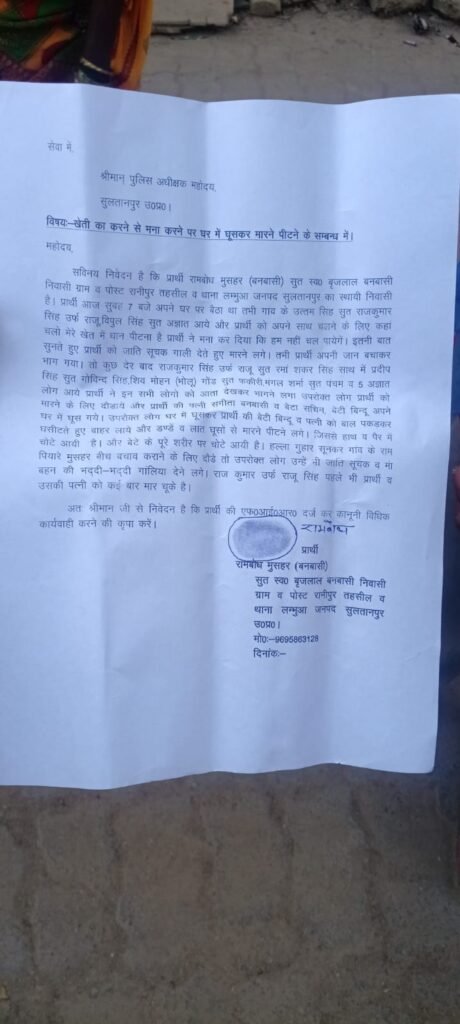 सेवा में,
श्रीमान् पुलिस अधीक्षक महोदय,
सुलतानपुर उ0प्र0।
विषयः–खेती का करने से मना करने पर घर में घूसकर मारने पीटने के सम्बन्ध में।
महोदय,
सविनय निवेदन है कि प्रार्थी रामबोध मुसहर (बनबासी) सुत स्व0 बृजलाल बनबासी
निवासी ग्राम व पोस्ट रानीपुर तहसील व थाना लम्भुआ जनपद सुलतानपुर का स्थायी निवासी
है। प्रार्थी आज सुबह 7 बजे अपने घर पर बैठा था तभी गाव के उत्तम सिंह सुत राजकुमार
सिंह उर्फ राजू,विपुल सिंह सुत अज्ञात आये और प्रार्थी को अपने साथ चलने के लिए कहा
चलो मेरे खेत में धान पीटना है प्रार्थी ने मना कर दिया कि हम नही चल पायेगे। इतनी बात
सुनते हुए प्रार्थी को जाति सूचक गाली देते हुए मारने लगे। तभी प्रार्थी अपनी जान बचाकर
भाग गया। तो कुछ देर बाद राजकुमार सिंह उर्फ राजू सुत रमा शंकर सिंह साथ में प्रदीप
सिंह सुत गोविन्द सिंह,शिव मोहन (भोलू) गोंड सुत फकीरी,मंगल शर्मा सुत पंचम व 5 अज्ञात
लोग आये प्रार्थी ने इन सभी लोगो को आता देखकर भागने लगा उपरोक्त लोग प्रार्थी को
मारने के लिए दौडाये और प्रार्थी की पत्नी संगीता बनबासी व बेटा सचिन, बेटी बिन्दू अपने
घर में घूस गये। उपरोक्त लोग घर में घूसकर प्रार्थी की बेटी बिन्दू व पत्नी को बाल पकडकर
घसीटते हुए बाहर लाये और डण्डे व लात घूसो से मारने पीटने लगे। जिससे हाथ व पैर में
चोटे आयी है। और बेटे के पूरे शरीर पर चोटे आयी है। हल्ला गुहार सूनकर गाव के राम
पियारे मुसहर बीच बचाव कराने के लिए दौडे तो उपरोक्त लोग उन्हें भी जाति सूचक व मां
बहन की भद्दी–भद्दी गालिया देने लगे। राज कुमार उर्फ राजू सिंह पहले भी प्रार्थी व
उसकी पत्नी को कई बार मार चूके है।
अतः श्रीमान जी से निवेदन है कि प्रार्थी की एफ0आई0आर0 दर्ज कर कानूनी विधिक
कार्यवाही करने की कृपा करें।
रामबोध
प्रार्थी
रामबोध मुसहर (बनबासी)
सुत स्व0 बृजलाल बनबासी निवासी
ग्राम व पोस्ट रानीपुर तहसील व
थाना लम्भुआ जनपद सुलतानपुर
उ0प्र0।
मो0:–9695863128
दिनांकः–